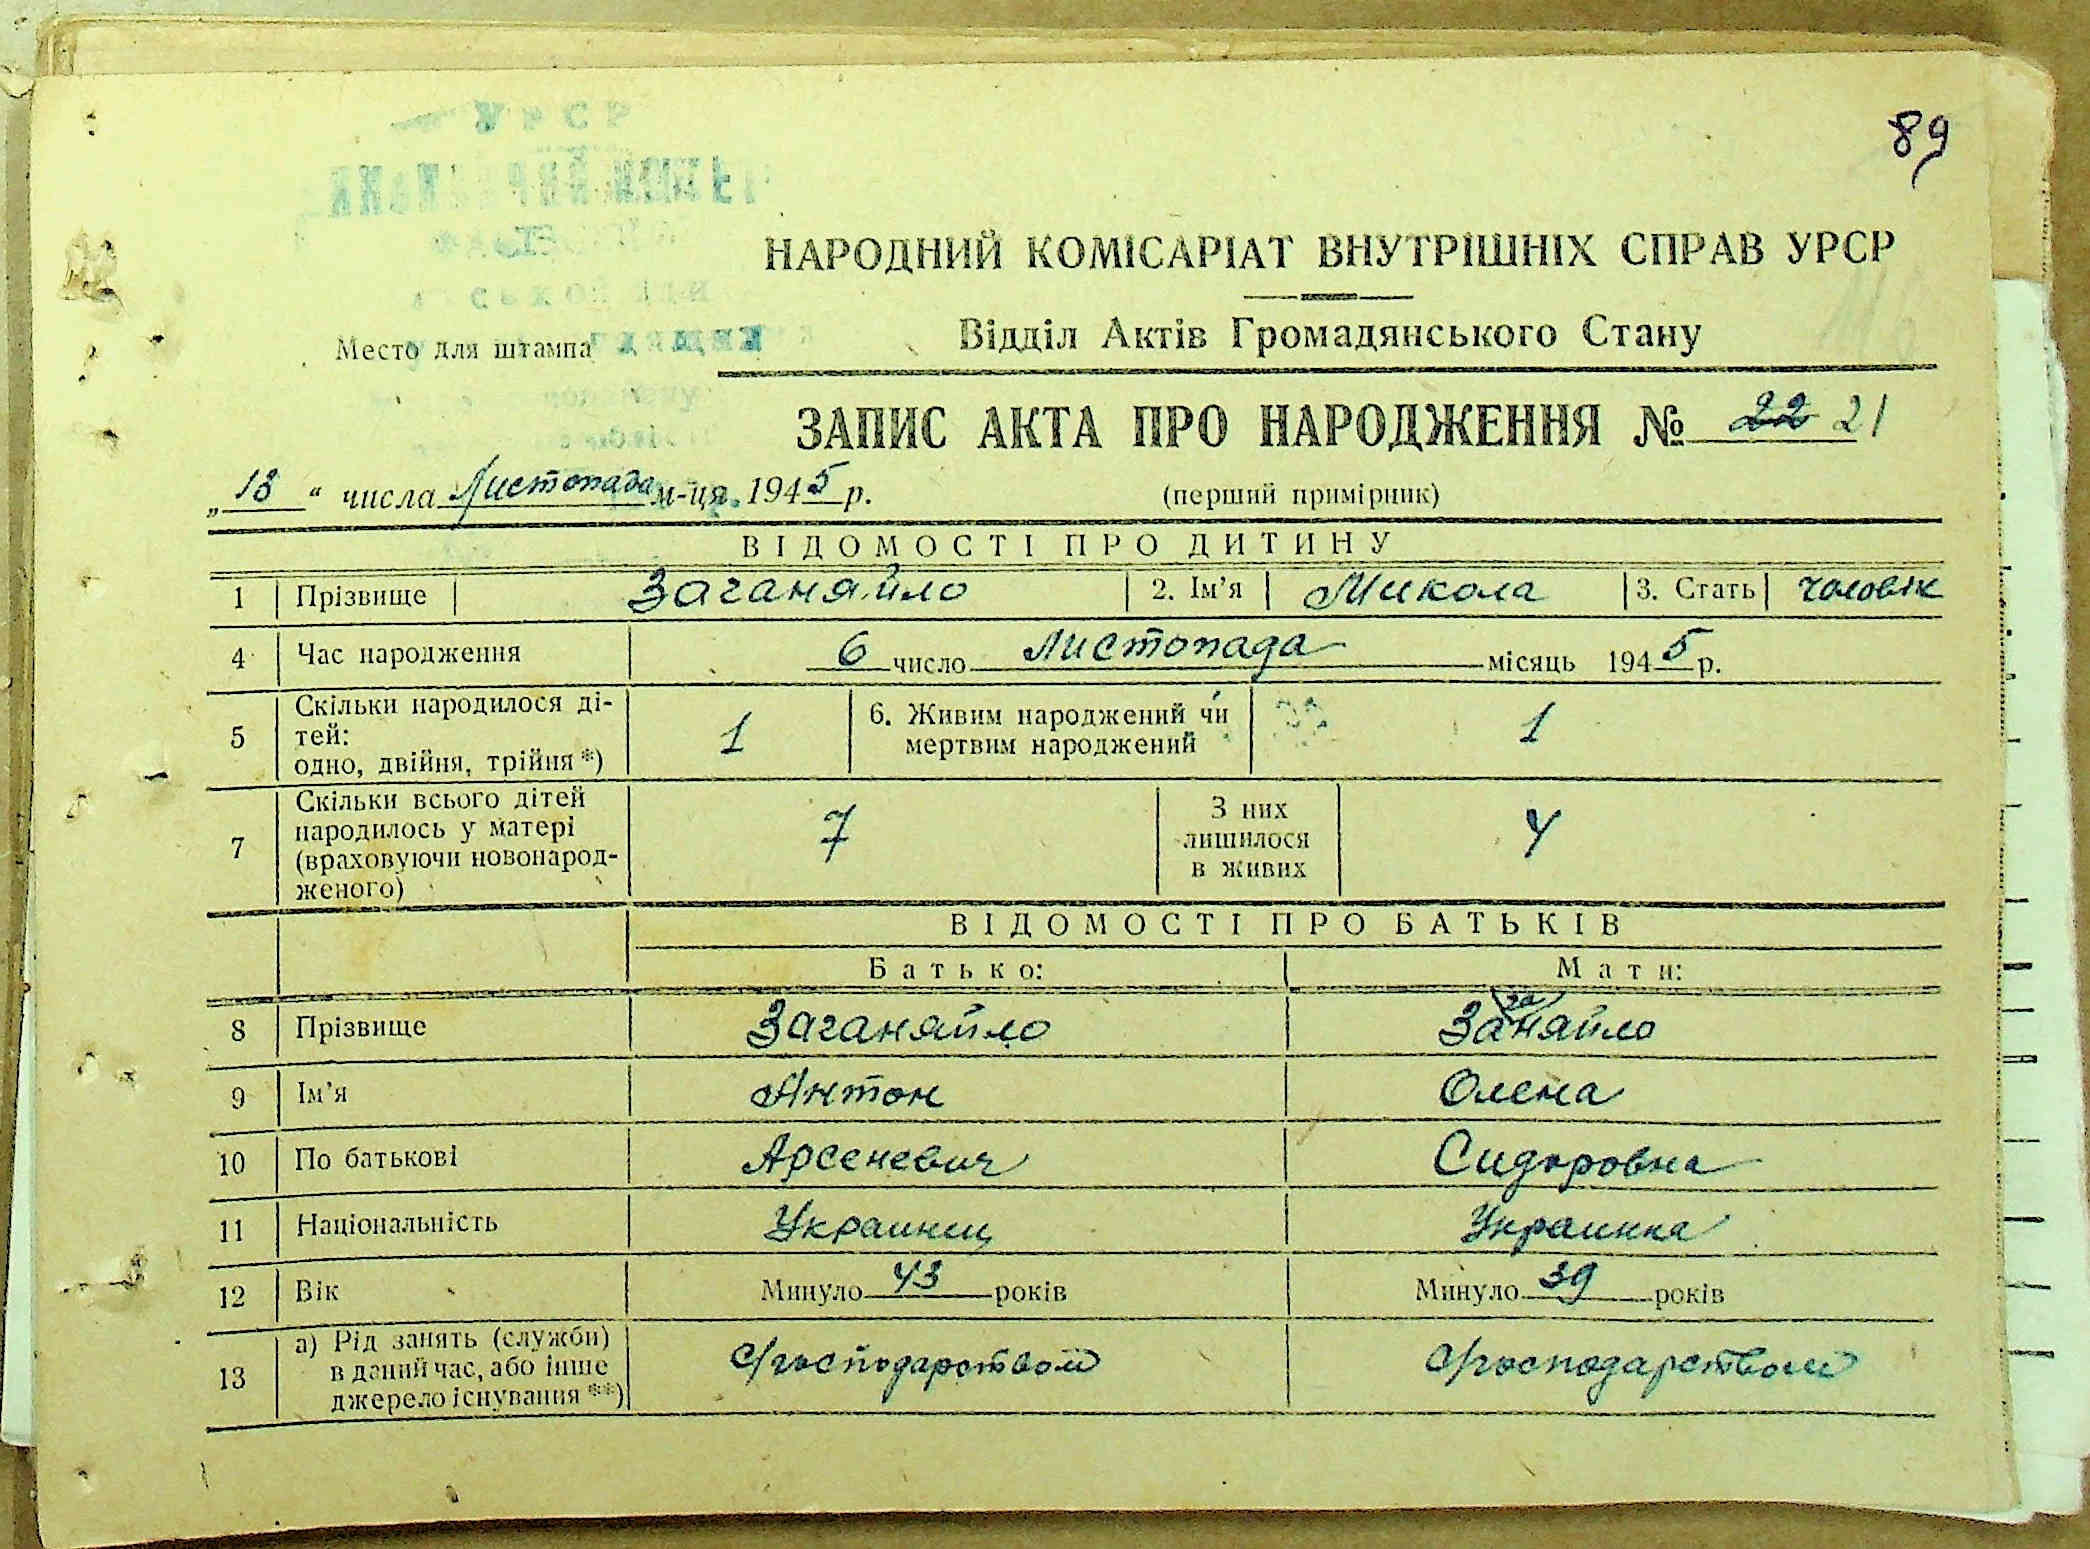 89
НАРОДНИЙ КОМІСАРІАТ ВНУТРІШНІХ СПРАВ УРСР
Место для штампа
Відділ Актів Громадянського Стану
ЗАПИС АКТА ПРО НАРОДЖЕННЯ № 22 21
„13“ числа Листопада м-ця 1945 р. (перший примірник)
ВІДОМОСТІ ПРО ДИТИНУ
1 Прізвище Заганяйло 2. Ім’я Микола 3. Стать чоловік
4 Час народження 6 число Листопада місяць 1945 р.
5 Скільки народилося ді-
тей:
одно, двійня, трійня *) 1
6. Живим народжений чи
мертвим народжений 1
7 Скільки всього дітей
народилось у матері
(враховуючи новонарод-
женого) 7
З них
лишилося
в живих 4
ВІДОМОСТІ ПРО БАТЬКІВ
Батько: Мати:
8 Прізвище Заганяйло Заганяйло
9 Ім’я Антон Олена
10 По батькові Арсеневич Сидоровна
11 Національність Украинец Украинка
12 Вік Минуло 43 років Минуло 39 років
13 а) Рід занять (служби)
в даний час, або інше
джерело існування **) с/господарством с/господарством